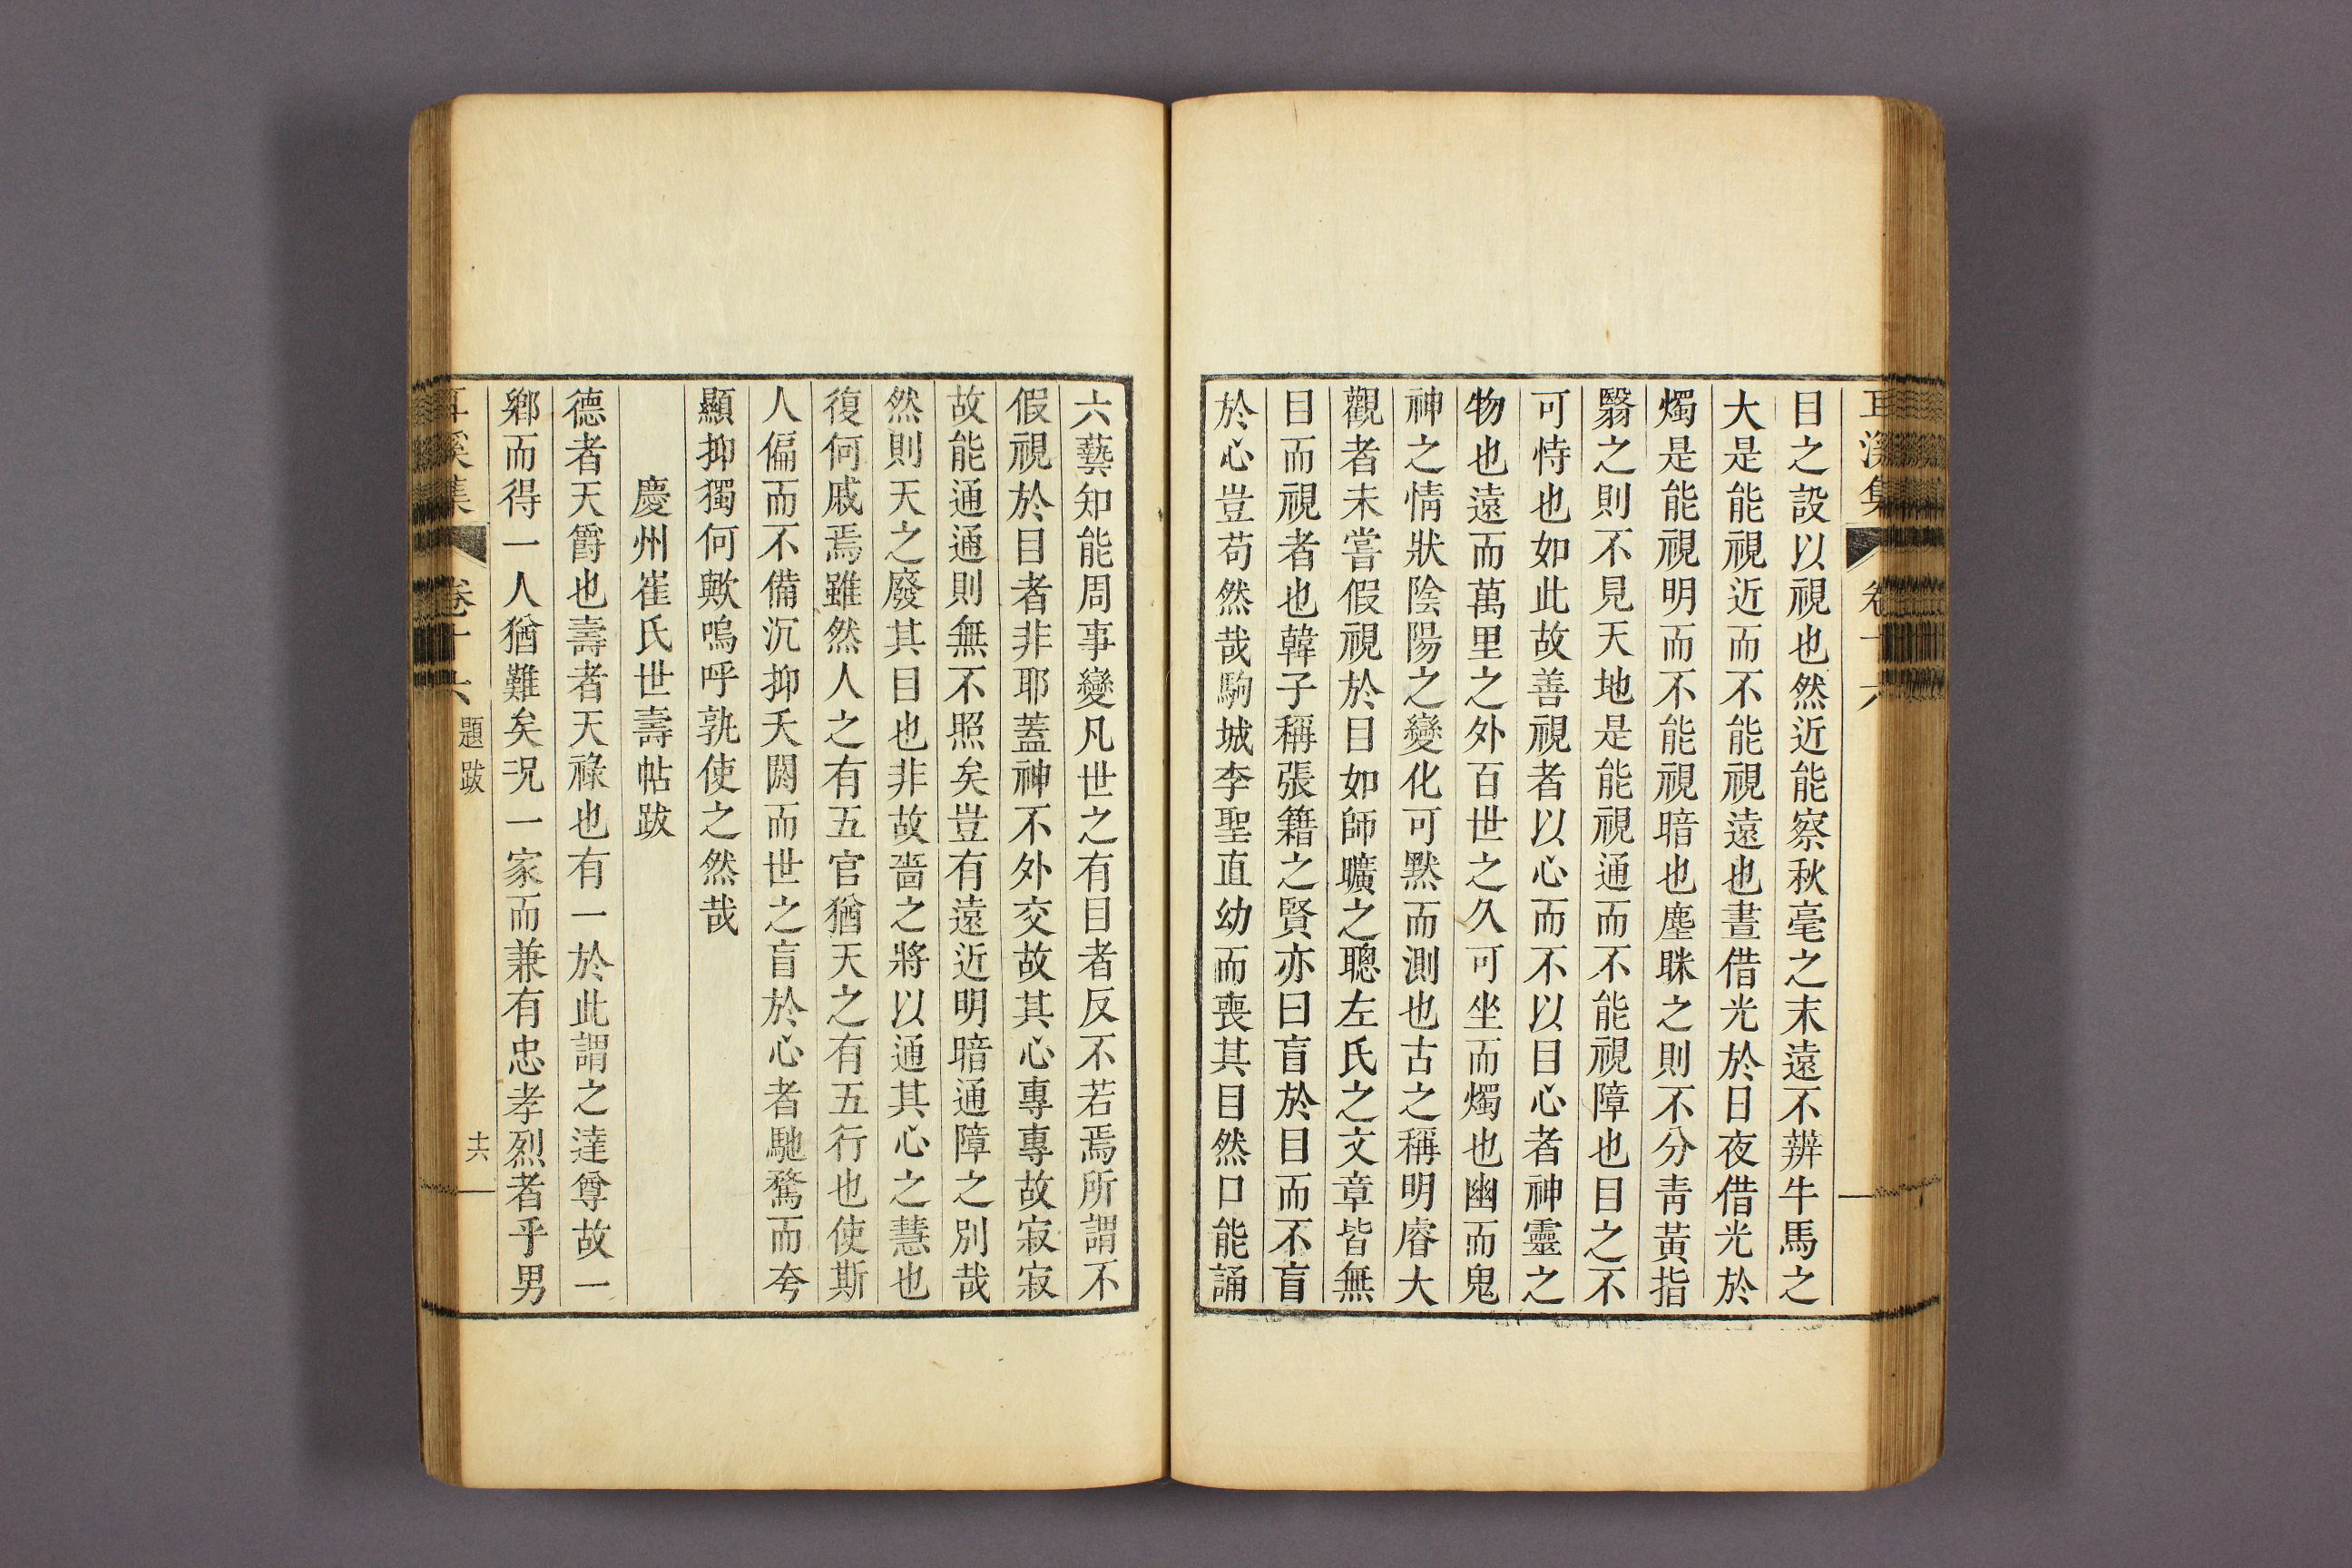 耳溪集 卷十六
目之設以視也然近能察秋毫之末遠不辨牛馬之
大是能視近而不能視遠也晝借光於日夜借光於
燭是能視明而不能視暗也塵眯之則不分靑黃指
翳之則不見天地是能視通而不能視障也目之不
可恃也如此故善視者以心而不以目心者神靈之
物也遠而萬里之外百世之久可坐而燭也幽而鬼
神之情狀陰陽之變化可默而測也古之稱明睿大
觀者未嘗假視於目如師曠之聰左氏之文章皆無
目而視者也韓子稱張籍之賢亦曰盲於目而不盲
於心豈苟然哉駒城李聖直幼而喪其目然口能誦
六藝知能周事變凡世之有目者反不若焉所謂不
假視於目者非耶蓋神不外交故其心專專故寂寂
故能通通則無不照矣豈有遠近明暗通障之別哉
然則天之廢其目也非故嗇之將以通其心之慧也
復何戚焉雖然人之有五官猶天之有五行也使斯
人偏而不備沉抑夭閼而世之盲於心者馳騖而夸
顯抑獨何歟嗚呼孰使之然哉
慶州崔氏世壽帖跋
德者天爵也壽者天祿也有一於此謂之達尊故一
鄕而得一人猶難矣况一家而兼有忠孝烈者乎男
耳溪集 卷十六 題跋 十六